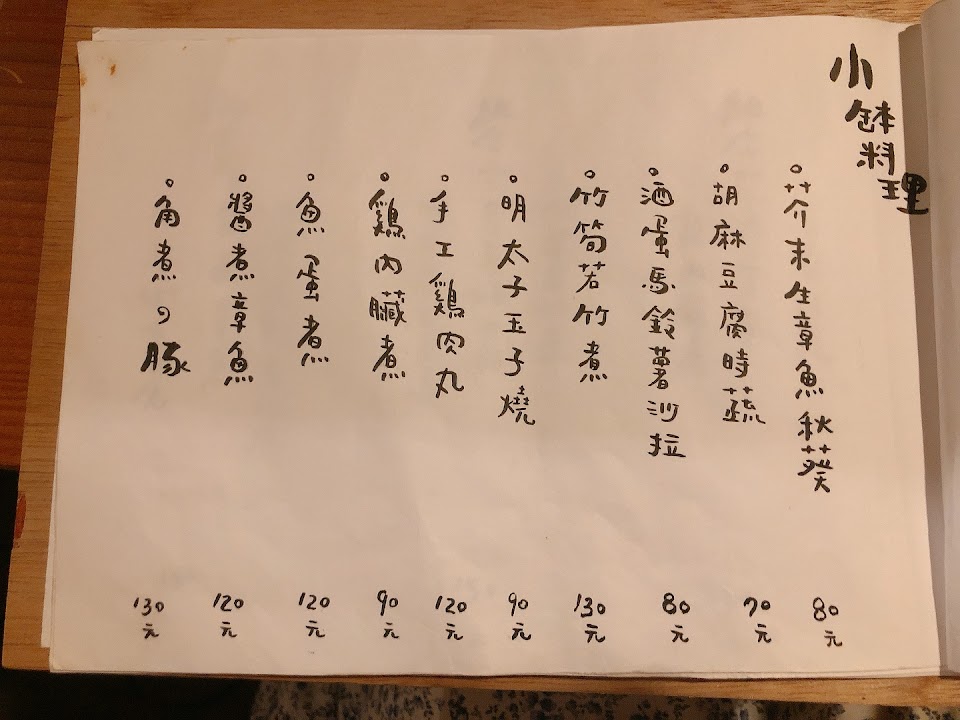 小鉢料理
。芥末生章魚秋葵 80元
。胡麻豆腐時蔬 70元
。酒蛋馬鈴薯沙拉 80元
。竹筍若竹煮 130元
。明太子玉子燒 90元
。手工鷄肉丸 120元
。鷄內臟煮 90元
。魚蛋煮 120元
。醬煮章魚 120元
。角煮の豚 130元